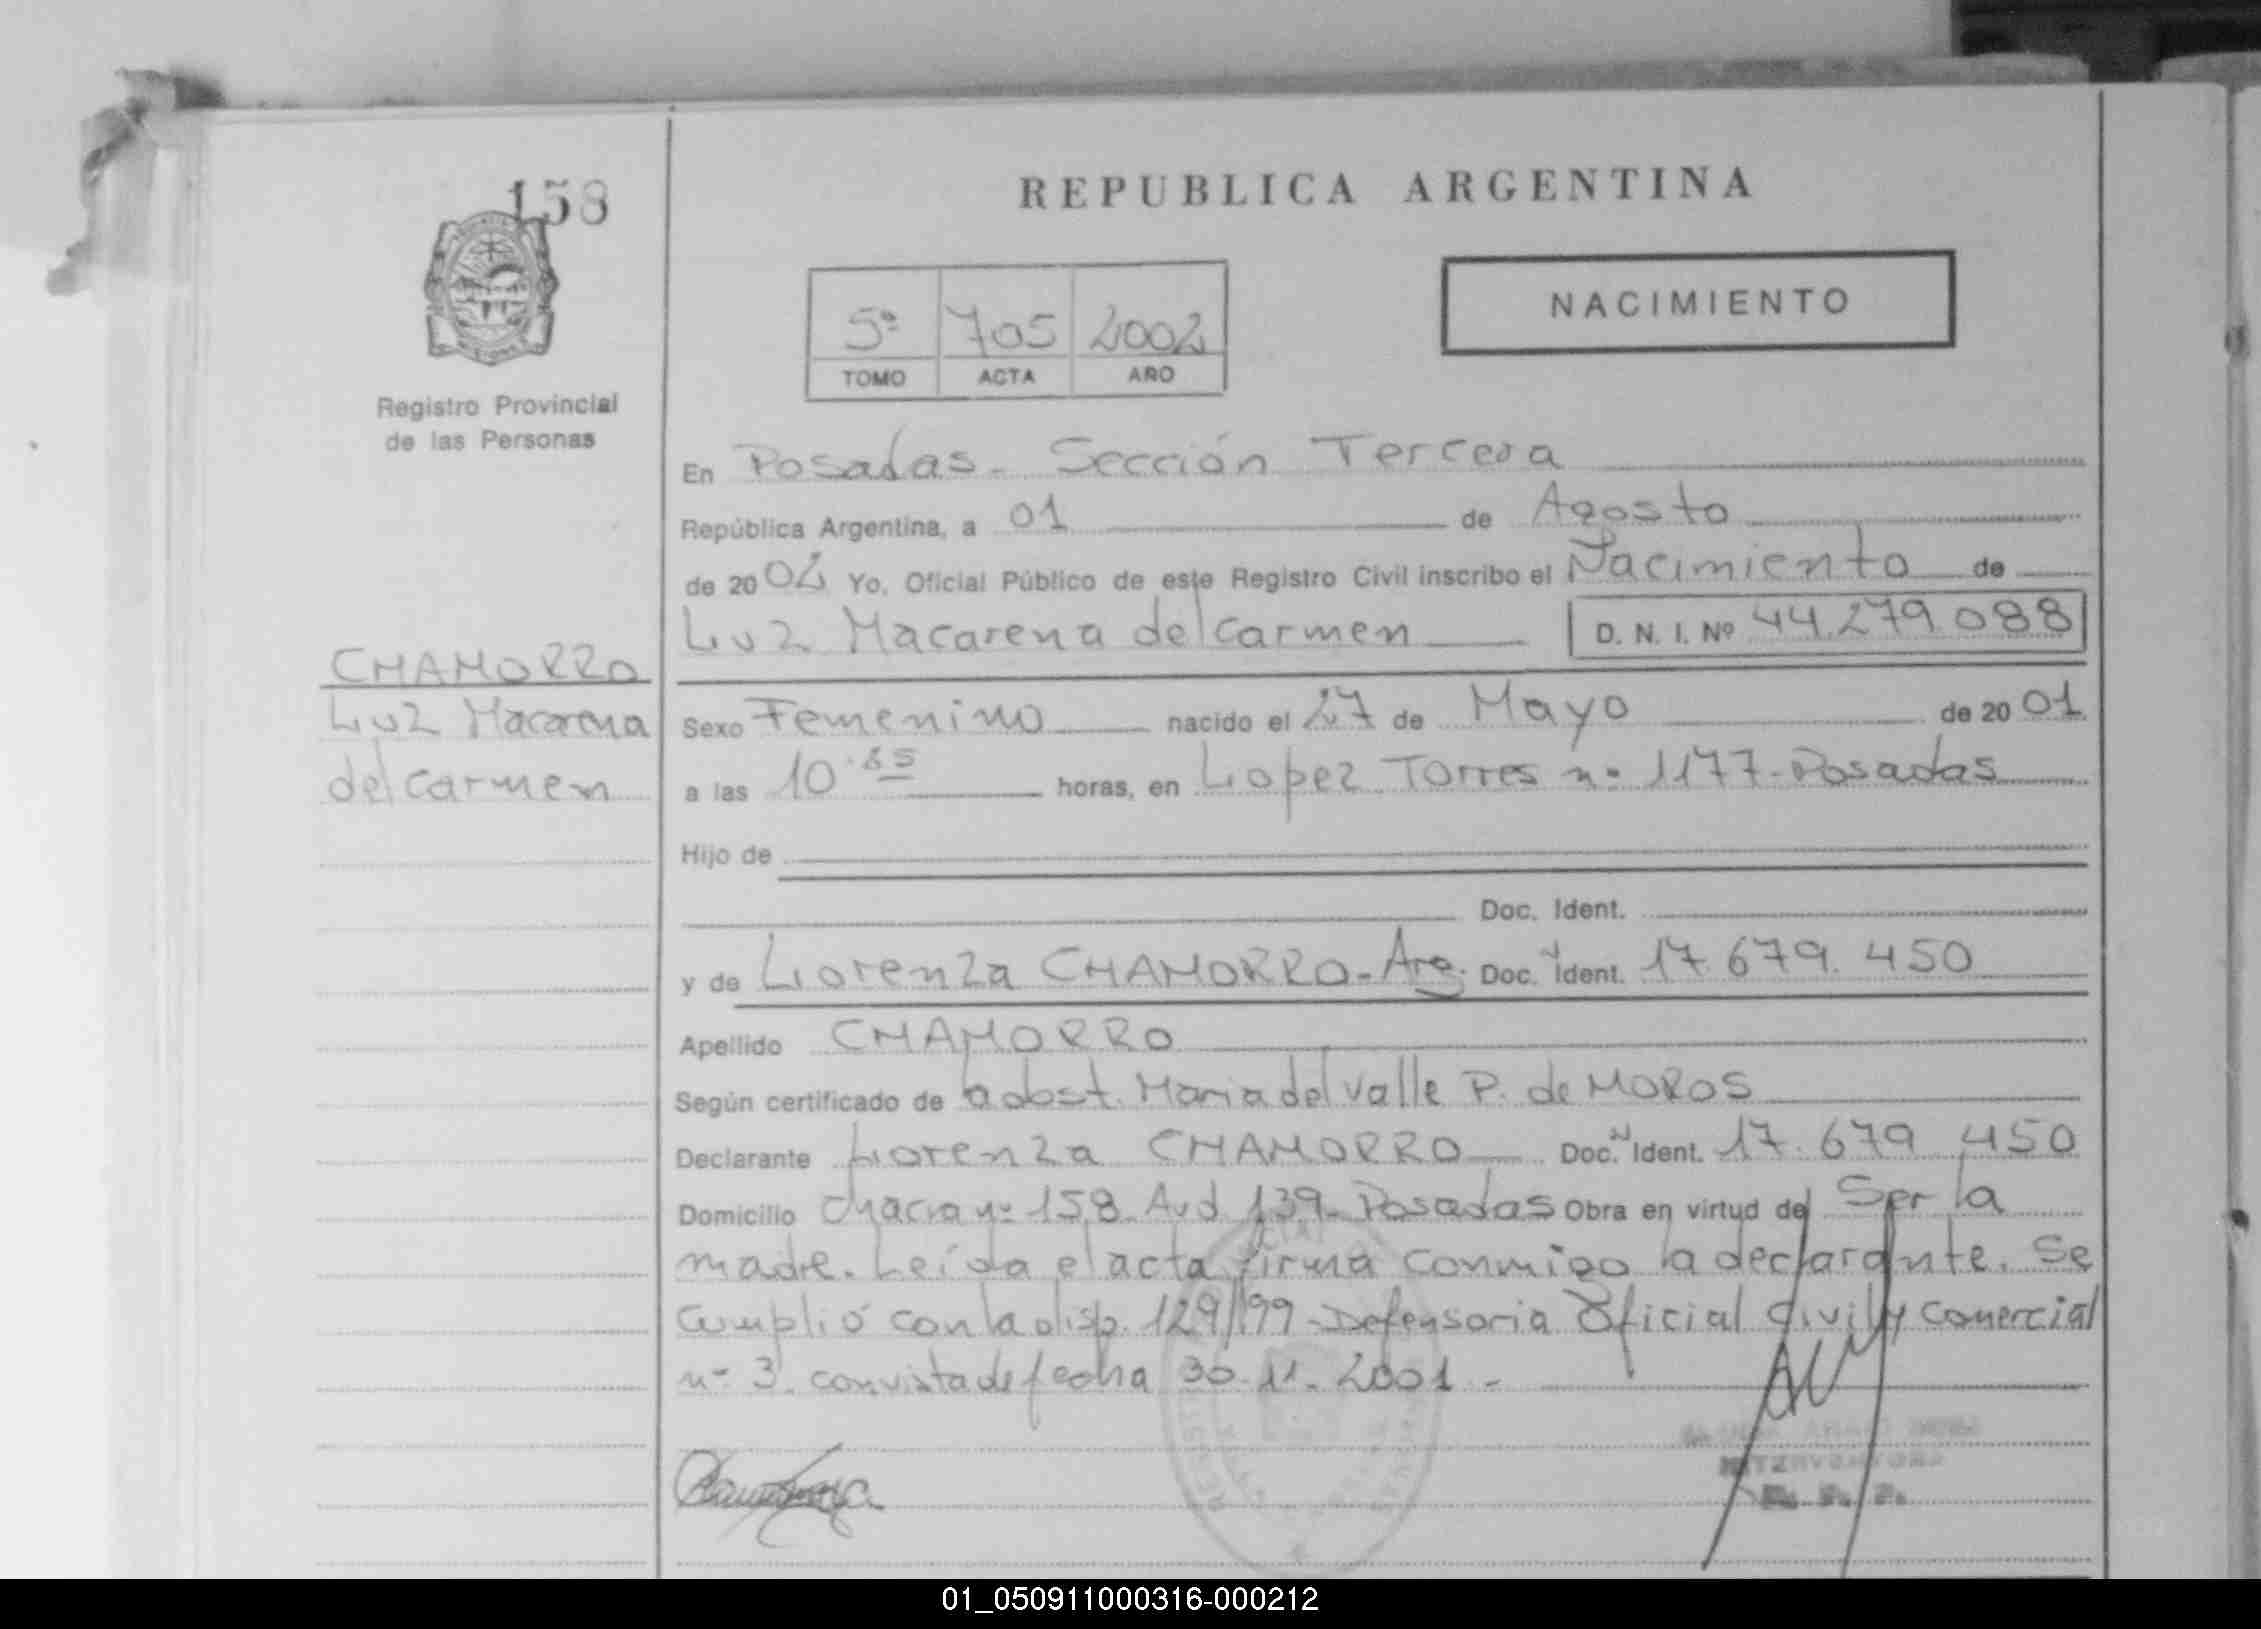 158
REPUBLICA ARGENTINA
NACIMIENTO
5º 705 2002
TOMO ACTA AÑO
Registro Provincial
de las Personas
En Posadas - Sección Tercera
República Argentina, a 01 de Agosto
de 2002 Yo, Oficial Público de este Registro Civil inscribo el Nacimiento de
Luz Macarena del Carmen D. N. I. Nº 44.279.088
CHAMORRO
Luz Macarena
del Carmen
Sexo Femenino nacido el 27 de Mayo de 2001
a las 10 horas, en Lopez Torres nº 1177 - Posadas
Hijo de
Doc. Ident.
y de Lorenza CHAMORRO - Arg. Doc. Ident. 17.679.450
Apellido CHAMORRO
Según certificado de la obst. Maria del Valle P. de MOROS
Declarante Lorenza CHAMORRO Doc. Ident. 17.679.450
Domicilio Chacra nº 158. Avd. 139 - Posadas Obra en virtud de Ser la
madre. Leída el acta firma conmigo la declarante. Se
cumplió con la disp. 129/99 - Defensoria Oficial Civil y Comercial
nº 3. con vista de fecha 30.11.2001 -
01_050911000316-000212